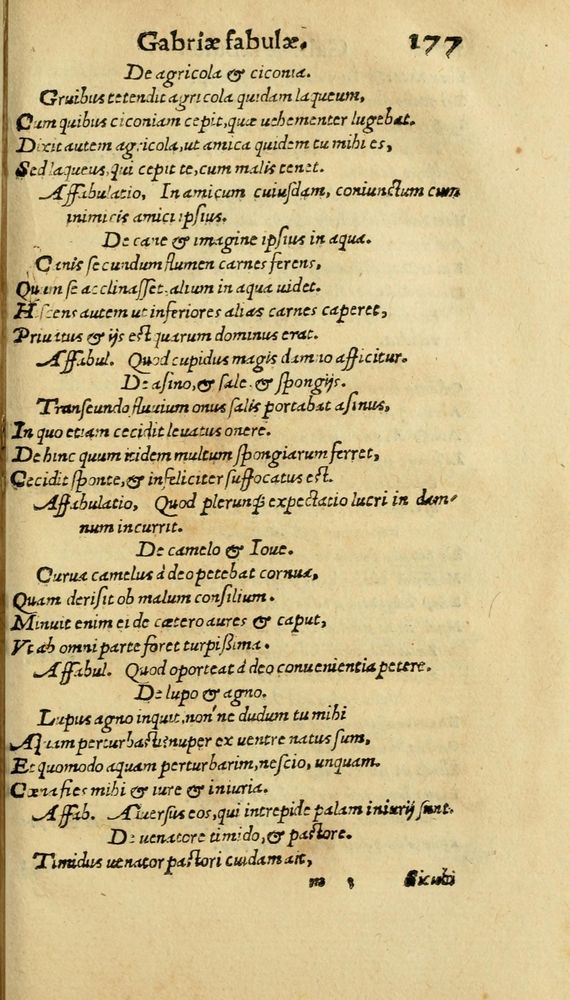 Gabriæ fabulæ. 177
De agricola & ciconia.
Gruibus tetendit agricola quidam laqueum,
Cum quibus ciconiam cepit, quæ uehementer lugebat.
Dixit autem agricola, ut amica quidem tu mihi es,
Sed laqueus, qui cepit te, cum malis tenet.
Affabulatio, In amicum cuiusdam, coniunctum cum
inimicis amici ipsius.
De cane & imagine ipsius in aqua.
Canis secundum flumen carnes ferens,
Quum se acclinasset, alium in aqua uidet.
Hiscens autem ut inferiores alias carnes caperet,
Priuatus & ijs est quarum dominus erat.
Affabul. Quod cupidus magis damno afficitur.
De asino, & sale & spongijs.
Transeundo fluuium onus salis portabat asinus,
In quo etiam cecidit leuatus onere.
De hinc quum itidem multum spongiarum ferret,
Cecidit sponte, & infeliciter suffocatus est.
Affabulatio, Quod plerunq; expectatio lucri in dam-
num incurrit.
De camelo & Ioue.
Curua camelus à deo petebat cornua,
Quam derisit ob malum consilium.
Minuit enim ei de cætero aures & caput,
Vt ab omni parte foret turpißima.
Affabul. Quod oporteat à deo conuenientia petere.
De lupo & agno.
Lupus agno inquit, non'ne dudum tu mihi
Aquam perturbasti? nuper ex uentre natus sum,
Et quomodo aquam perturbarim, nescio, unquam.
Cœna fies mihi & iure & iniuria.
Affab. Aduersus eos, qui intrepide palam iniurij sunt.
De uenatore timido, & pastore.
Timidus uenator pastori cuidam ait,
m 3 Sicubi